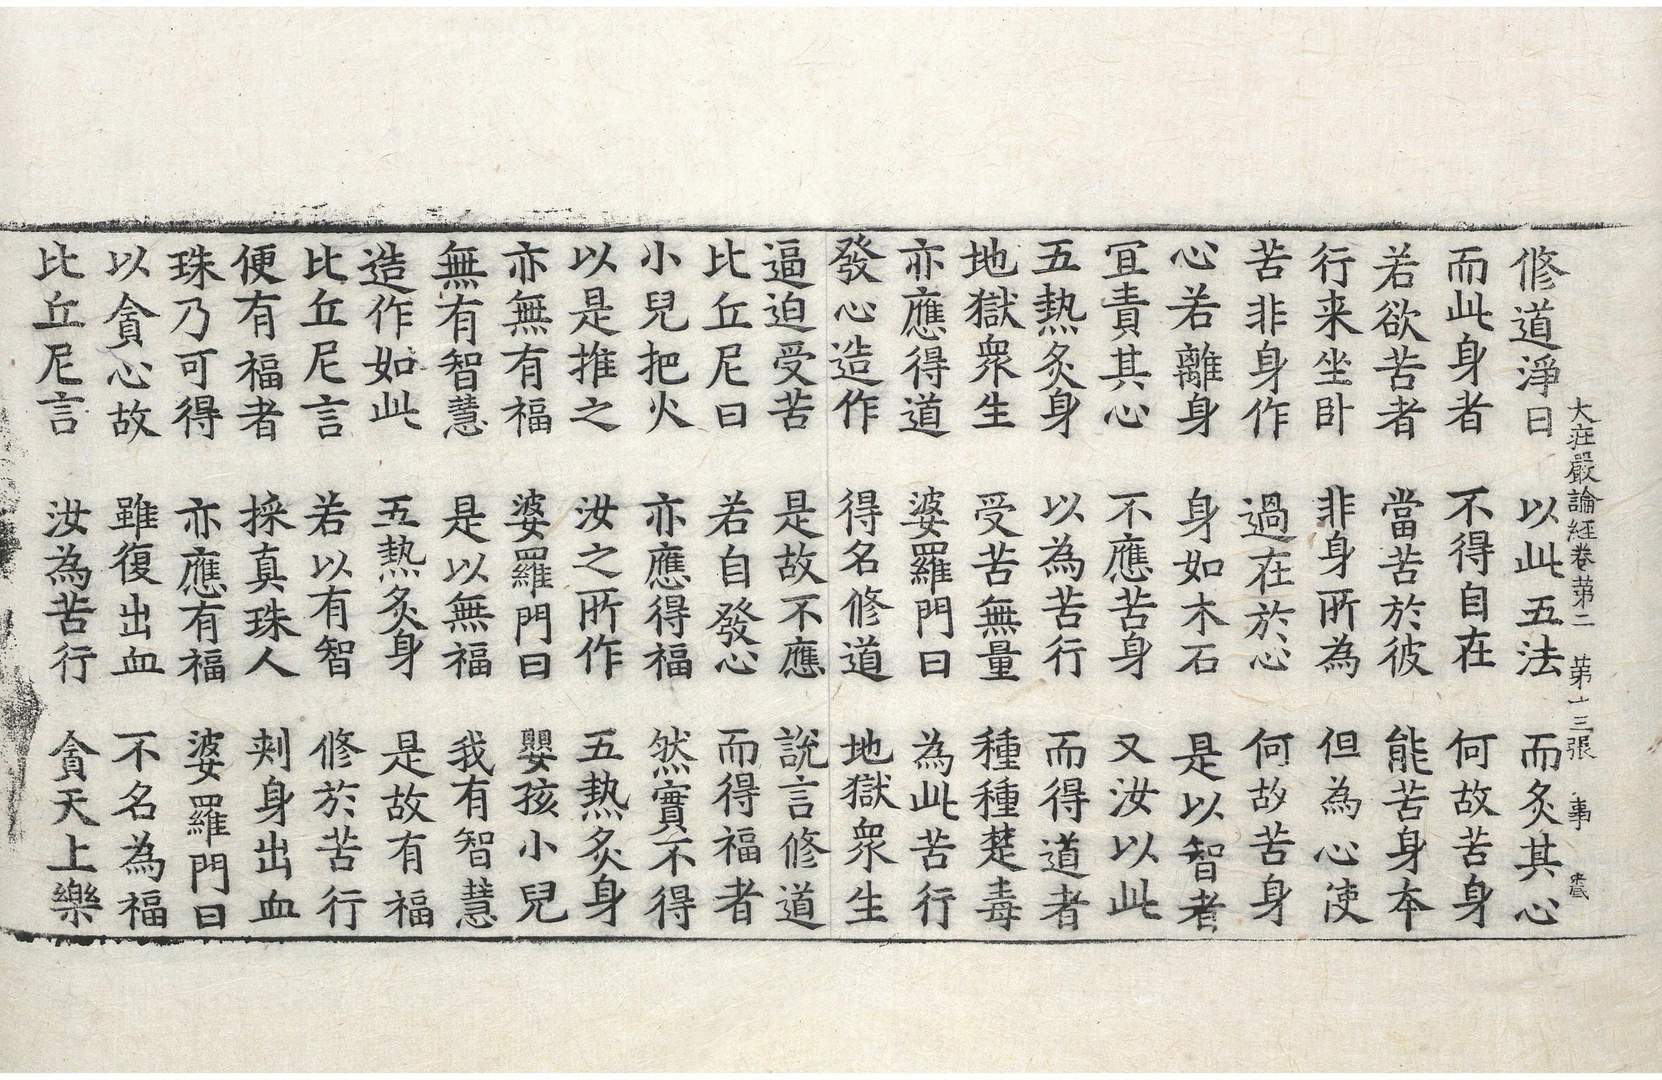 大莊嚴論經卷第二 第十三張 事
修道淨日 以此五法 而炙其心
而此身者 不得自在 何故苦身
若欲苦者 當苦於彼 能苦身本
行来坐卧 非身所為 但為心使
苦非身作 過在於心 何故苦身
心若離身 身如木石 是以智者
冝責其心 不應苦身 又汝以此
五熱炙身 以為苦行 而得道者
地獄衆生 受苦無量 種種楚毒
亦應得道 婆羅門曰 為此苦行
發心造作 得名修道 地獄衆生
逼迫受苦 是故不應 說言修道
比丘尼曰 若自發心 而得福者
小兒把火 亦應得福 然實不得
以是推之 汝之所作 五熱炙身
亦無有福 婆羅門曰 嬰孩小兒
無有智慧 是以無福 我有智慧
造作如此 五熱炙身 是故有福
比丘尼言 若以有智 修於苦行
便有福者 採真珠人 刾身出血
珠乃可得 亦應有福 婆羅門曰
以貪心故 雖復出血 不名為福
比丘尼言 汝為苦行 貪天上樂